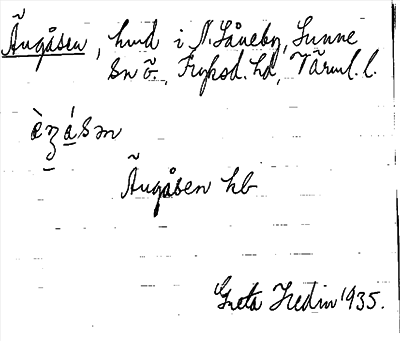 Ängåsen, hmd i N. Låneby, Sunne
sn ö., Fryksd. hd, Värml. l.
Ängåsen hb
Greta Hedin 1935.